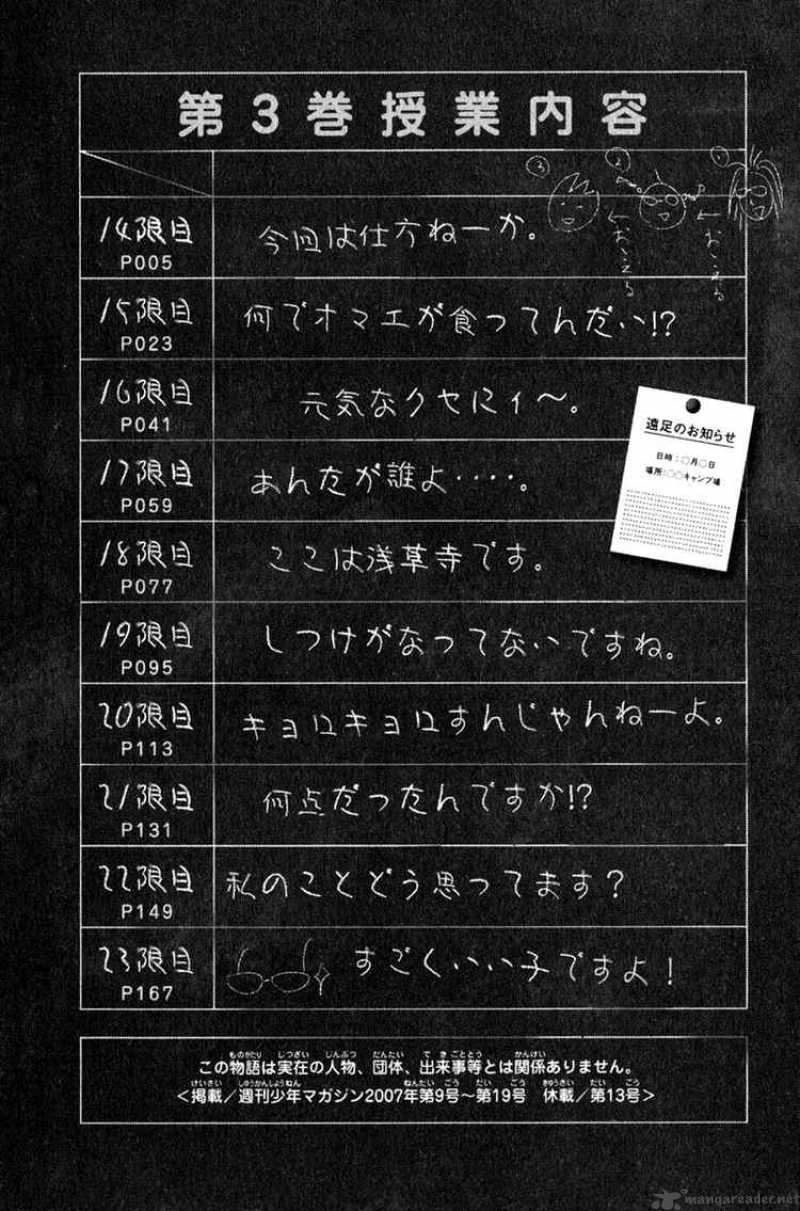 第3巻授業内容
③ ② ①
←おこえる ←おこえる
14限目 今回は仕方ねーか。
P005
15限目 何でオマエが食ってんだい!?
P023
16限目 元気なクセにィ〜。
P041
遠足のお知らせ
日時:○月○日
場所:○○キャンプ場
17限目 あんたが誰よ‥‥。
P059
18限目 ここは浅草寺です。
P077
19限目 しつけがなってないですね。
P095
20限目 キョロキョロすんじゃんねーよ。
P113
21限目 何点だったんですか!?
P131
22限目 私のことどう思ってます?
P149
23限目 すごくいい子ですよ!
P167
この物語は実在の人物、団体、出来事等とは関係ありません。
<掲載/週刊少年マガジン2007年第9号〜第19号 休載/第13号>
mangareader.net